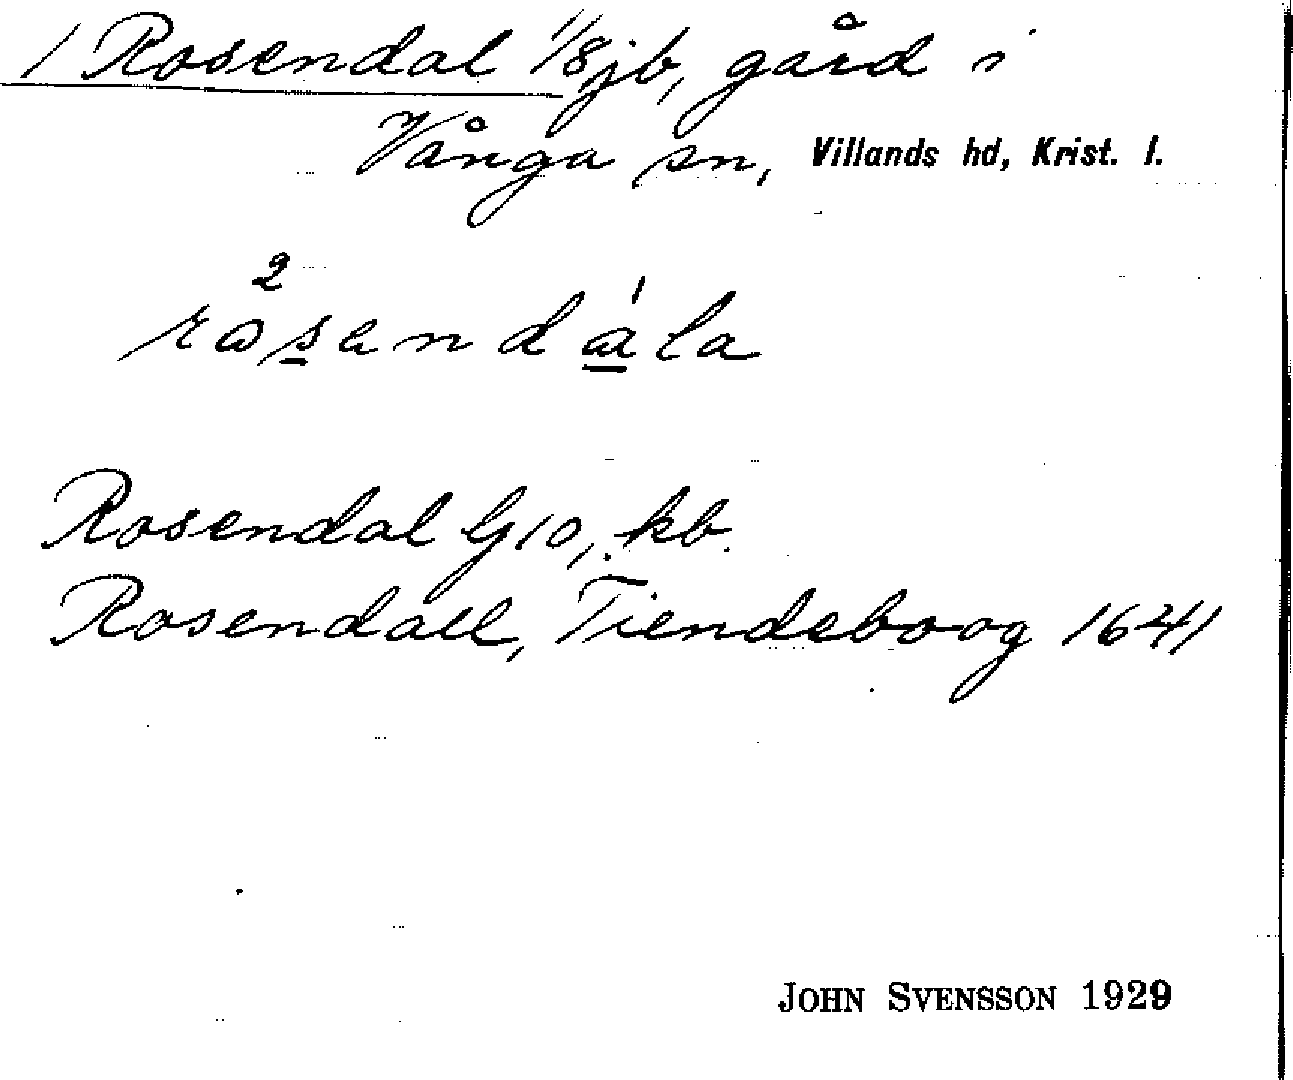 1 Rosendal 1/8 jb, gård i
Vånga sn, Villands hd, Krist. l.
2
rosendala
Rosendal G 10, kb.
Rosendall, Tiendeboog 1641
JOHN SVENSSON 1929